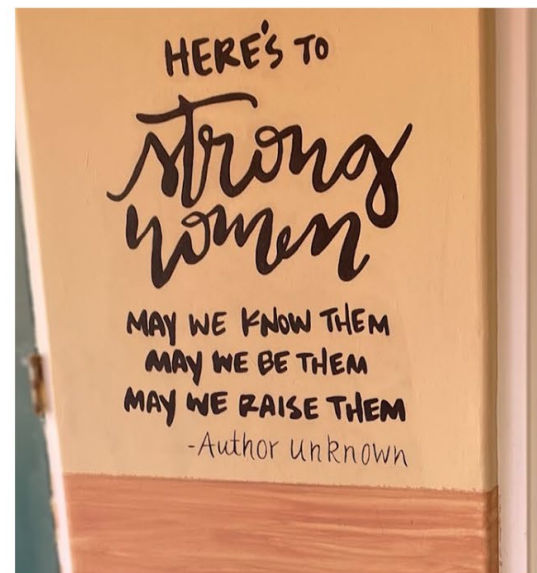 HERE'S TO
strong
women
MAY WE KNOW THEM
MAY WE BE THEM
MAY WE RAISE THEM
-Author Unknown